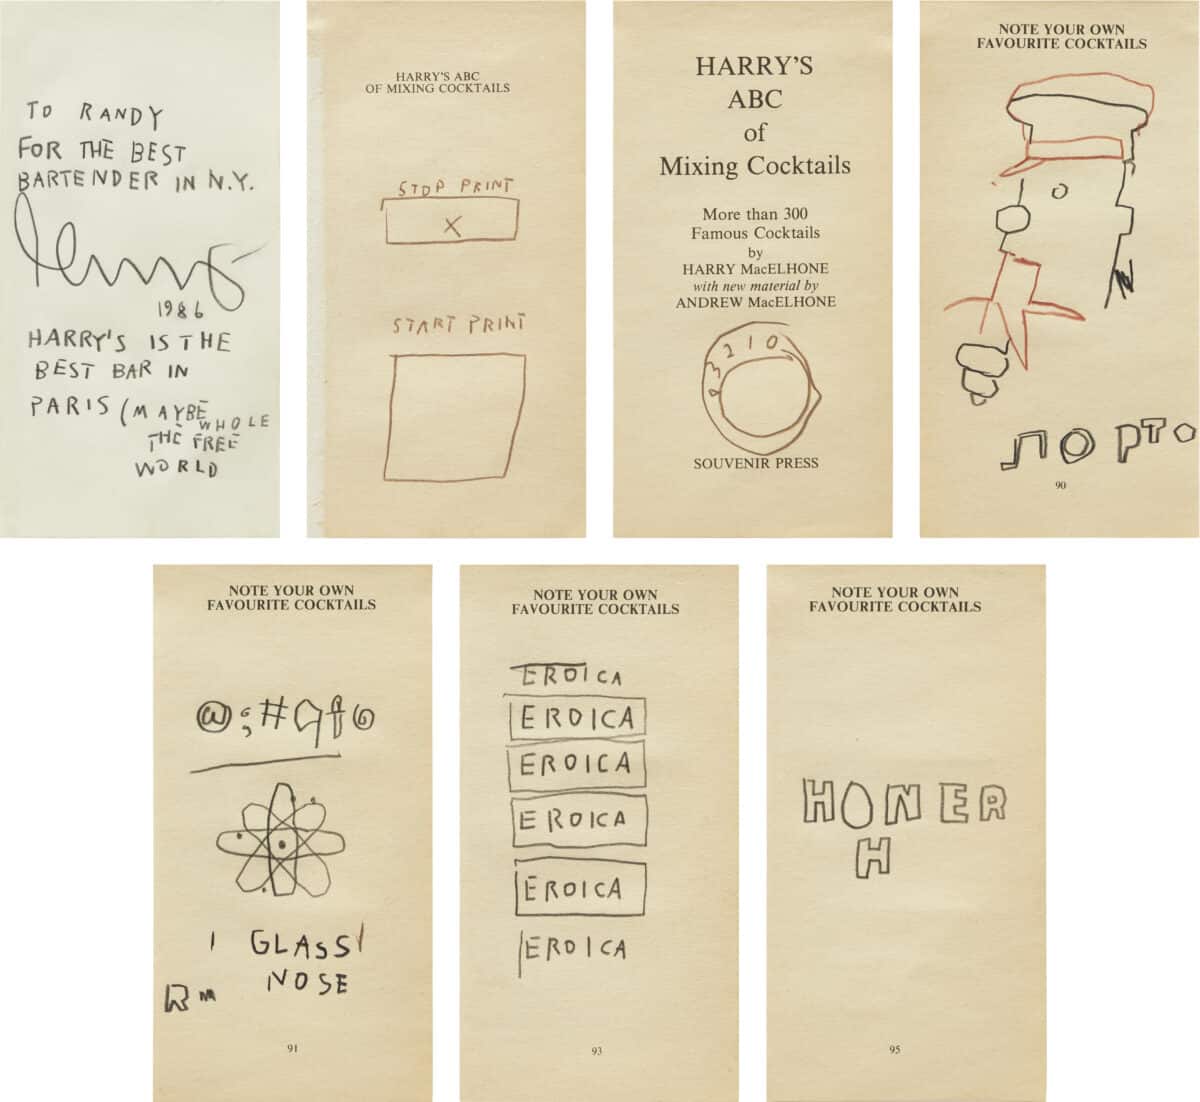 TO RANDY
FOR THE BEST
BARTENDER IN N.Y.
1986
HARRY'S IS THE
BEST BAR IN
PARIS (MAYBE WHOLE
THE FREE
WORLD
HARRY'S ABC
OF MIXING COCKTAILS
STOP PRINT
X
START PRINT
HARRY'S
ABC
of
Mixing Cocktails
More than 300
Famous Cocktails
by
HARRY MacELHONE
with new material by
ANDREW MacELHONE
3210
SOUVENIR PRESS
NOTE YOUR OWN
FAVOURITE COCKTAILS
ПОРТО
90
NOTE YOUR OWN
FAVOURITE COCKTAILS
1 GLASS
NOSE
91
NOTE YOUR OWN
FAVOURITE COCKTAILS
EROICA
EROICA
EROICA
EROICA
EROICA
EROICA
93
NOTE YOUR OWN
FAVOURITE COCKTAILS
HONER
H
95